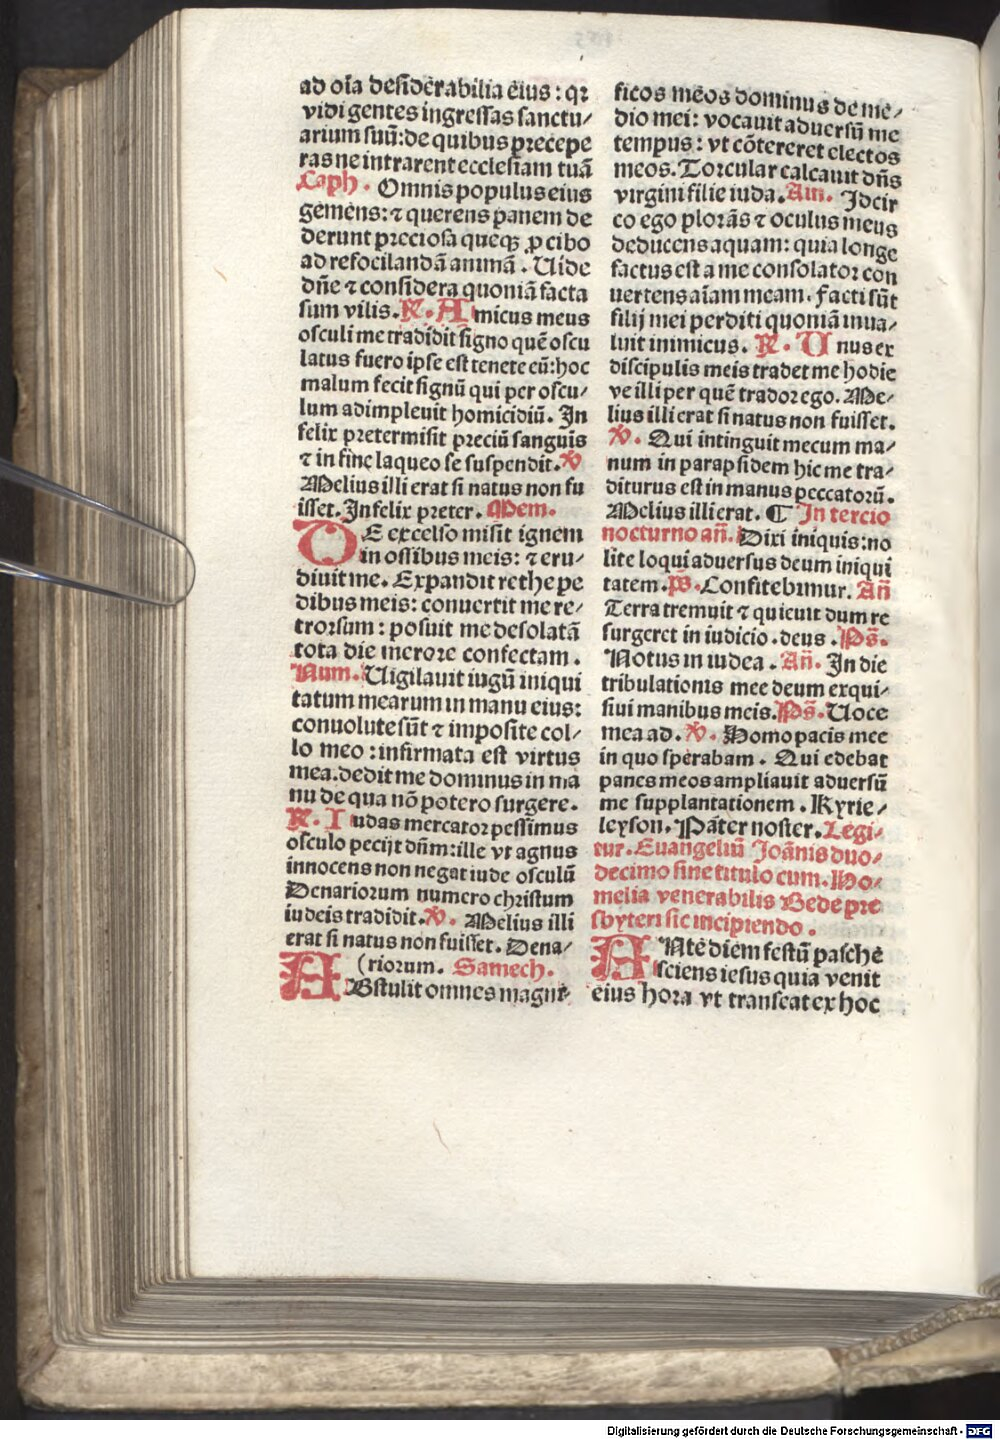 ad oı̄a desiderabilia eius : qꝛ
vidi gentes ingressas sanctu⸗
arium suū: de quibus precepe
ras ne intrarent ecclesiam tuā
Caph . Omnis populus eius
gemens: ⁊ querens panem de
derunt preciosa queqꝫ ꝓ cibo
ad refocilandā animā . Uide
dn̄e ⁊ considera quoniā facta
sum vilis. R̷. Amicus meus
osculi me tradidit signo quē oscu
latus fuero ipse est tenete eū: hoc
malum fecit signū qui per oscu⸗
lum adimplevit homicidiū . In
felix pretermisit preciū sanguis
⁊ in fine laqueo se suspendit. V̷
Melius illi erat si natus non fu
isset. Infelix preter. Mem.
DE excelso misit ignem
in ossibus meis: ⁊ eru⸗
divit me. Expandit rethe pe
dibus meis: convertit me re⸗
trorsum: posuit me desolatā
tota die merore confectam.
Num. Uigilavit iugū iniqui
tatum mearum in manu eius:
convolute sūt ⁊ imposite col⸗
lo meo : infirmata est virtus
mea. dedit me dominus in ma
nu de qua nō potero surgere.
R̷. Iudas mercator pessimus
osculo pecijt dn̄m: ille vt agnus
innocens non negat iude osculū
Denariorum numero christum
iudeis tradidit. V̷. Melius illi
erat si natus non fuisset. Dena⸗
(riorum. Samech.
ABstulit omnes magni⸗
ficos meos dominus de me⸗
dio mei: vocavit adversū me
tempus: vt cōtereret electos
meos. Torcular calcavit dn̄s
virgini filie iuda. Ain. Idcir
co ego plorās ⁊ oculus meus
deducens aquam: quia longe
factus est a me consolator con
uertens aīam meam. facti sūt
filij mei perditi quoniā inua⸗
luit inimicus. R̷. Unus ex
discipulis meis tradet me hodie
ve illi per quē trador ego. Me⸗
lius illi erat si natus non fuisset.
V̷. Qui intinguit mecum ma⸗
num in parapsidem hic me tra⸗
diturus est in manus peccatorū.
Melius illi erat. ¶ In tercio
nocturno an̄. Dixi iniquis: no
lite loqui adversus deum iniqui
tatem. ps̄. Confitebimur. An̄
Terra tremuit ⁊ quieuit dum re
surgeret in iudicio. deus. Ps̄.
Notus in iudea. An̄. In die
tribulationis mee deum exqui⸗
siui manibus meis. Ps̄. Uoce
mea ad. V̷. Homo pacis mee
in quo sperabam. Qui edebat
panes meos ampliauit aduersū
me supplantationem. Kyrie⸗
leyson. Pater noster. Legi⸗
tur. Euangeliū Joānis duo⸗
decimo sine titulo cum. Ho⸗
melia venerabilis Bede pre
sbyteri sic incipiendo.
ANte diem festū pasche
sciens iesus quia venit
eius hora vt transeat ex hoc
Digitalisierung gefördert durch die Deutsche Forschungsgemeinschaft - DFG